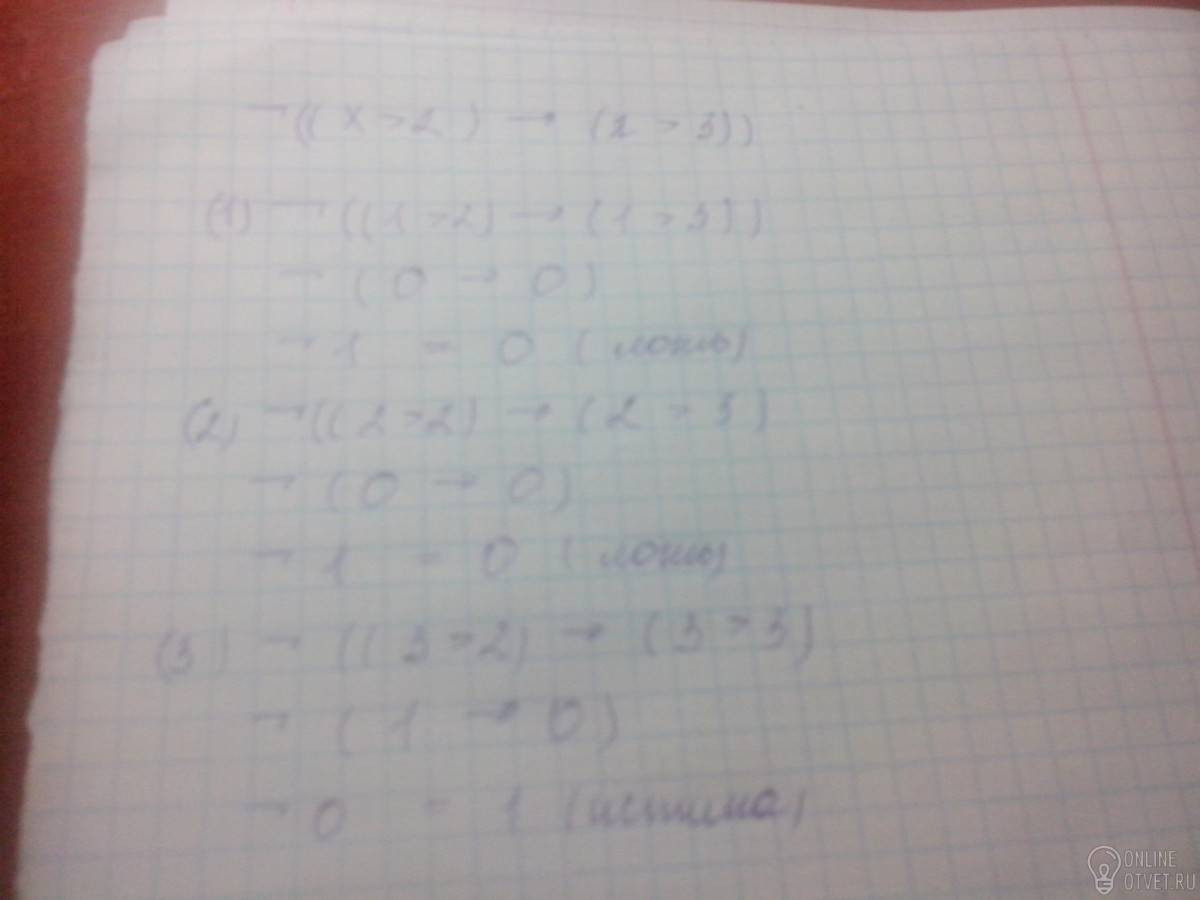 ¬((X > 2) → (2 > 3))
(1) ¬((1 > 2) → (1 > 3))
¬(0 → 0)
¬1 = 0 (ложь)
(2) ¬((2 > 2) → (2 > 3)
¬(0 → 0)
¬1 = 0 (ложь)
(3) ¬((3 > 2) → (3 > 3)
¬(1 → 0)
¬0 = 1 (истина)
ONLINE
OTVET.RU